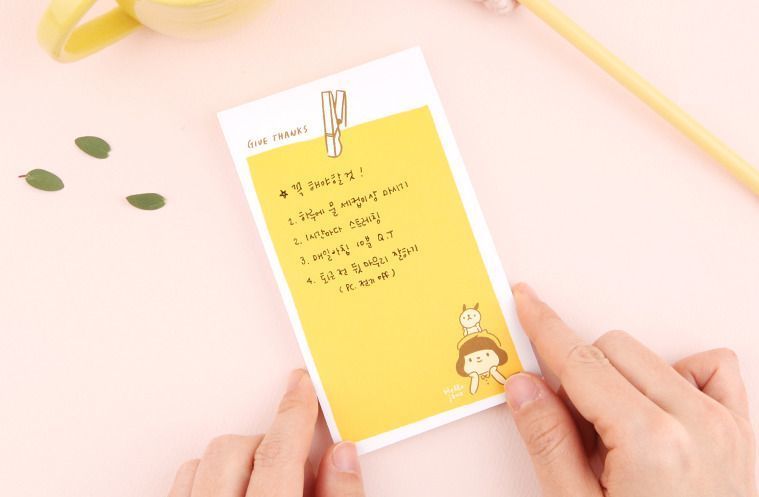 GIVE THANKS
★ 꼭 해야할것!
1. 하루에 물 세컵이상 마시기
2. 1시간마다 스트레칭
3. 매일아침 10분 Q.T
4. 퇴근 전 뒷 마무리 잘하기
(PC. 전기 off)
Hello
jane